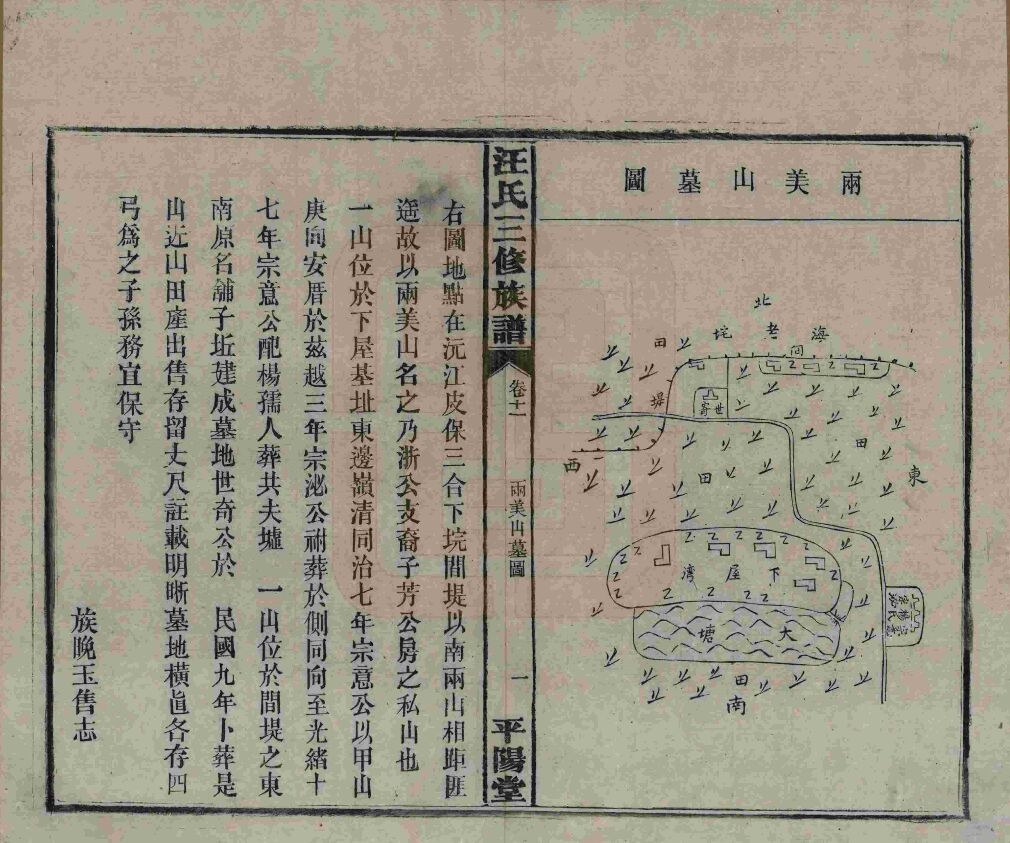 兩美山墓圖
北
海老垸
間
田
堤
世寄
西
田
田
東
下屋灣
大塘
田
南
宗意
楊氏
宗泌
汪氏三修族譜
卷十一
兩美山墓圖
一
平陽堂
右圖地點在沅江皮保三合下垸間堤以南兩山相距匪
遙故以兩美山名之乃浙公支裔子芳公房之私山也
一山位於下屋基址東邊嶺清同治七年宗意公以甲山
庚向安厝於茲越三年宗泌公祔葬於側同向至光緒十
七年宗意公配楊孺人葬共夫墟 一山位於間堤之東
南原名舖子坵建成墓地世奇公於 民國九年卜葬是
山近山田產出售存留丈尺註載明晰墓地橫直各存四
弓爲之子孫務宜保守
族晚玉售志